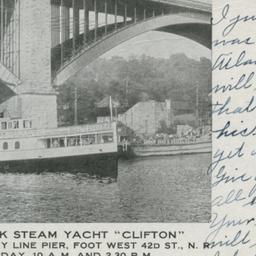 K STEAM YACHT "CLIFTON"
Y LINE PIER, FOOT WEST 42D ST., N. R.
DAY, 10 A.M. AND 2.30 P.M.
I ju
was
Atlan
will
that
this
yet
Give
all
Your
will